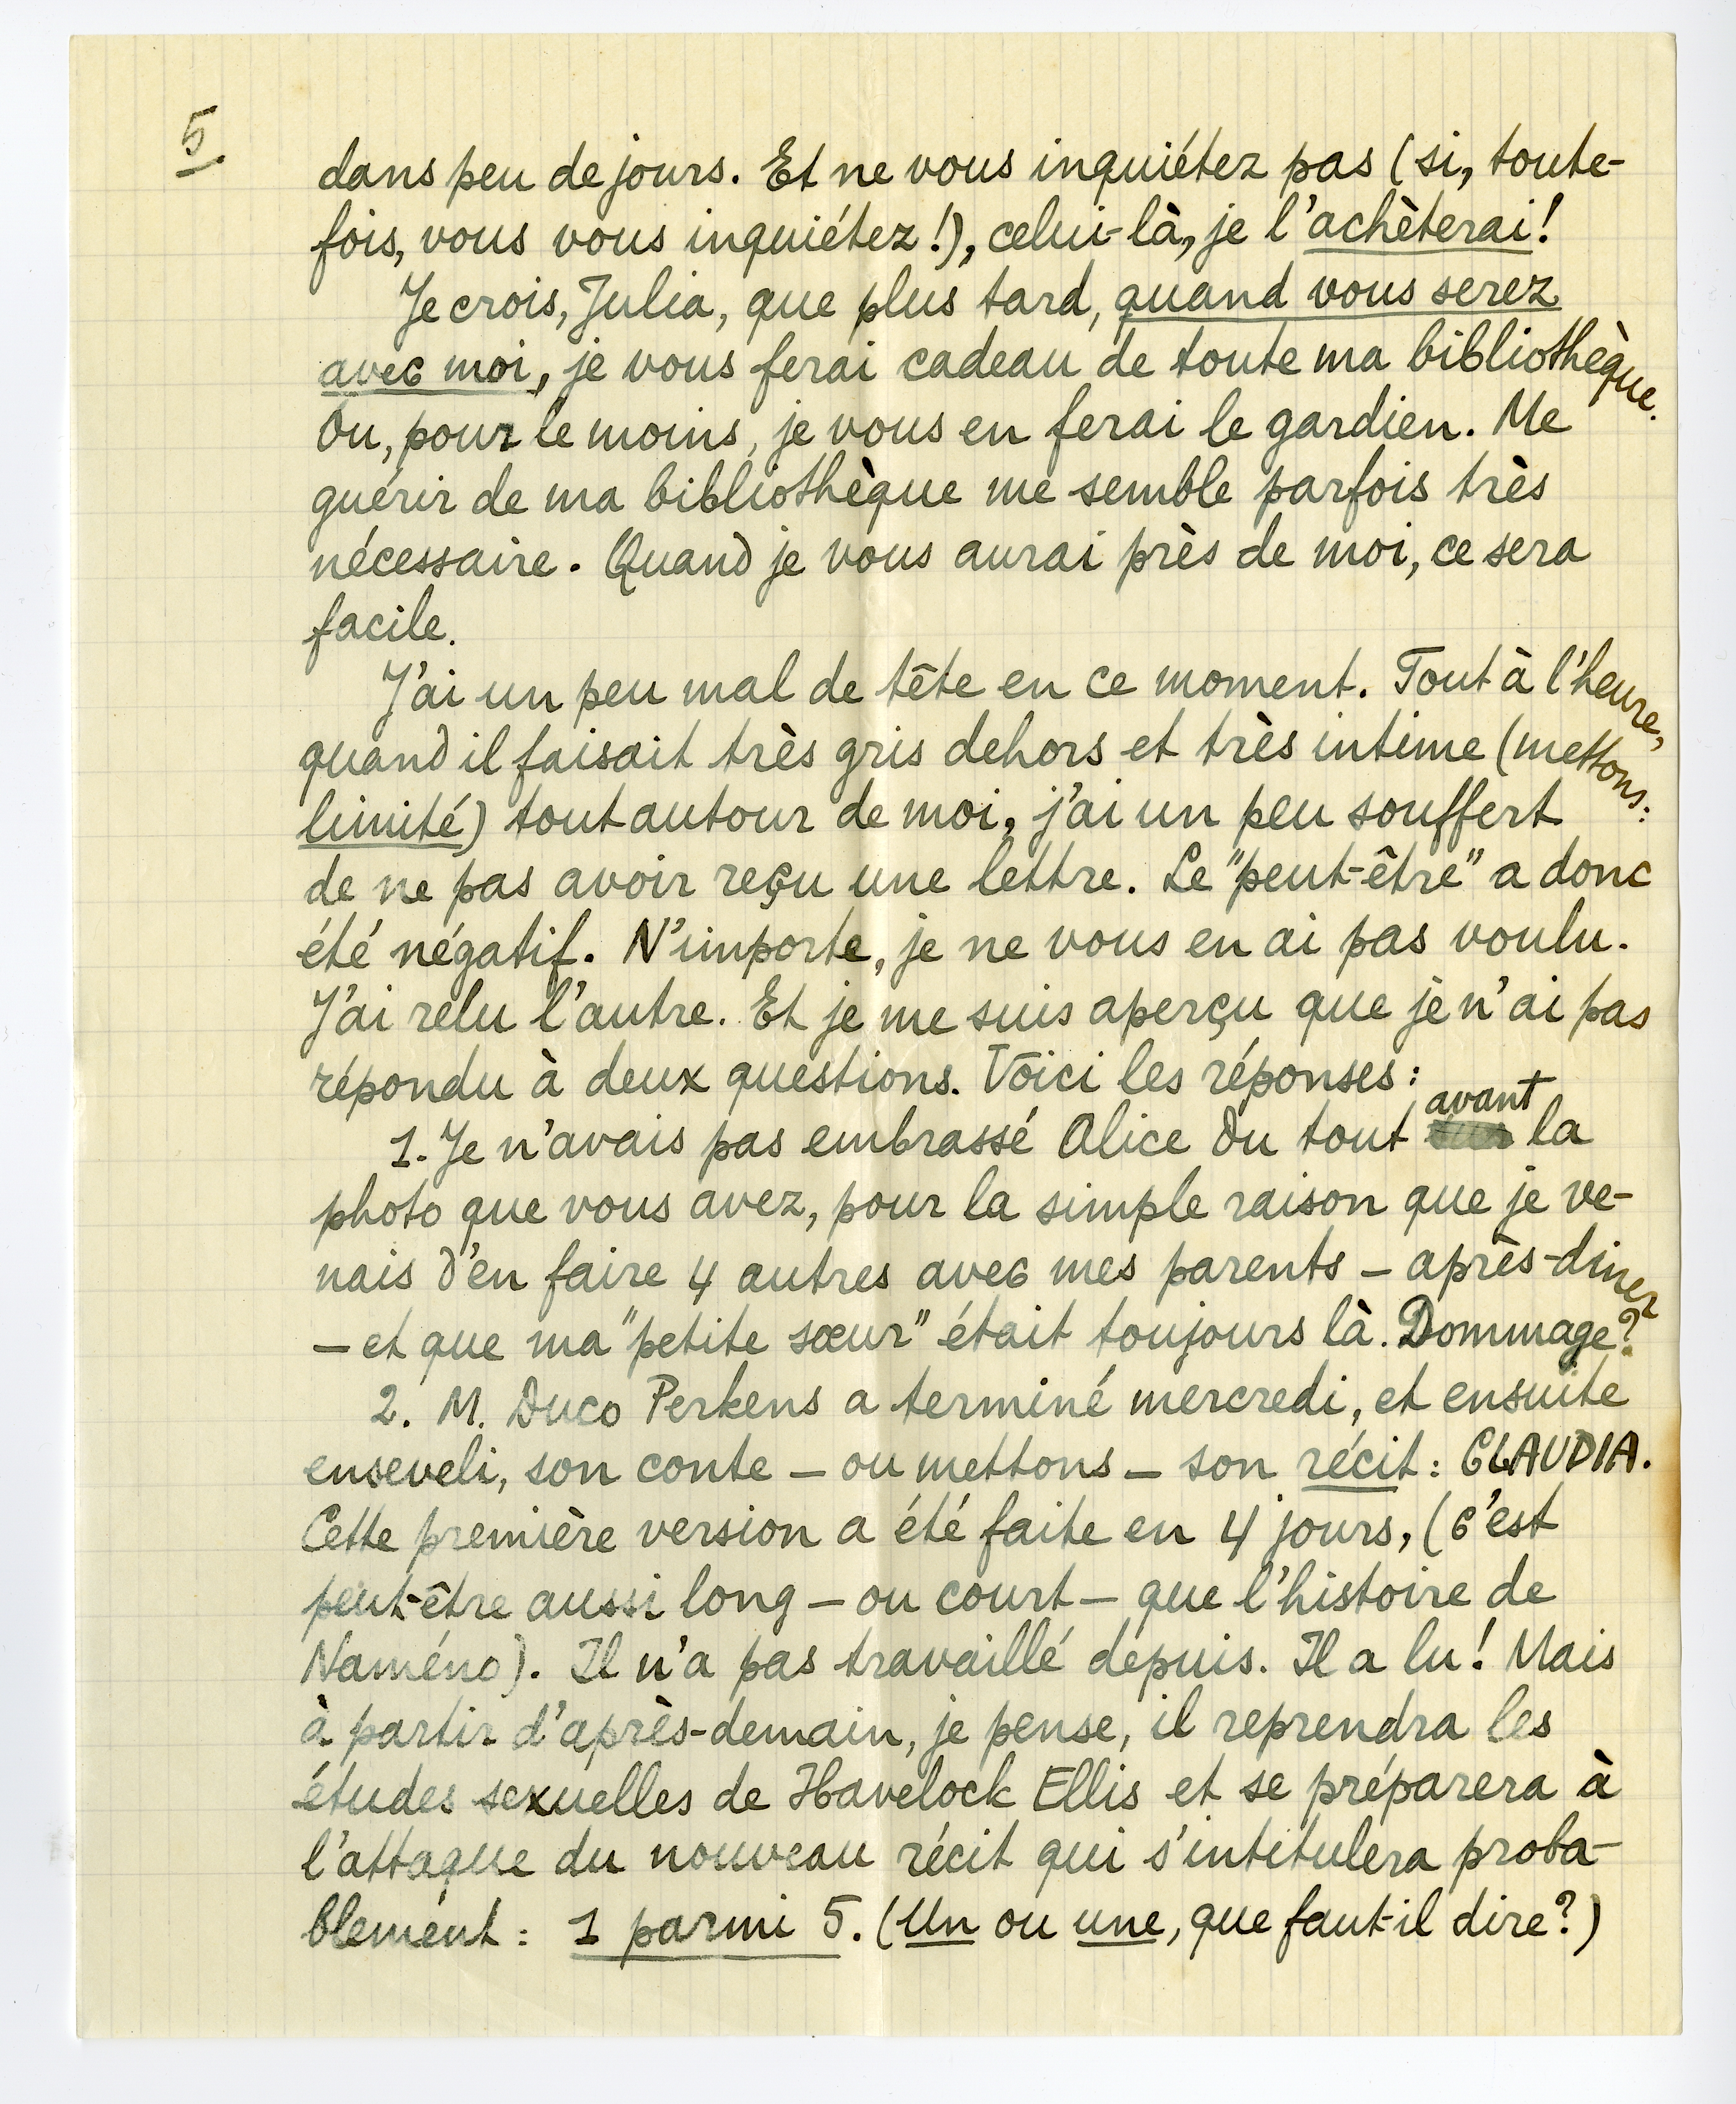 5.
dans peu de jours. Et ne vous inquiétez pas (si, toute-
fois, vous vous inquiétez!), celui-là, je l'achèterai!
Je crois, Julia, que plus tard, quand vous serez
avec moi, je vous ferai cadeau de toute ma bibliothèque.
Ou, pour le moins, je vous en ferai le gardien. Me
guérir de ma bibliothèque me semble parfois très
nécessaire. Quand je vous aurai près de moi, ce sera
facile.
J'ai un peu mal de tête en ce moment. Tout à l'heure,
quand il faisait très gris dehors et très intime (mettons:
limité) tout autour de moi, j'ai un peu souffert
de ne pas avoir reçu une lettre. Le "peut-être" a donc
été négatif. N'importe, je ne vous en ai pas voulu.
J'ai relu l'autre. Et je me suis aperçu que je n'ai pas
répondu à deux questions. Voici les réponses:
avant
1. Je n'avais pas embrassé Alice du tout la
photo que vous avez, pour la simple raison que je ve-
nais d'en faire 4 autres avec mes parents – après-diner
– et que ma "petite sœur" était toujours là. Dommage?
2. M. Duco Perkens a terminé mercredi, et ensuite
enseveli, son conte – ou mettons – son récit: CLAUDIA.
Cette première version a été faite en 4 jours, (c'est
peut-être aussi long – ou court – que l'histoire de
Naméno). Il n'a pas travaillé depuis. Il a lu! Mais
à partir d'après-demain, je pense, il reprendra les
études sexuelles de Havelock Ellis et se préparera à
l'attaque du nouveau récit qui s'intitulera proba-
blement: 1 parmi 5. (Un ou une, que faut-il dire?)